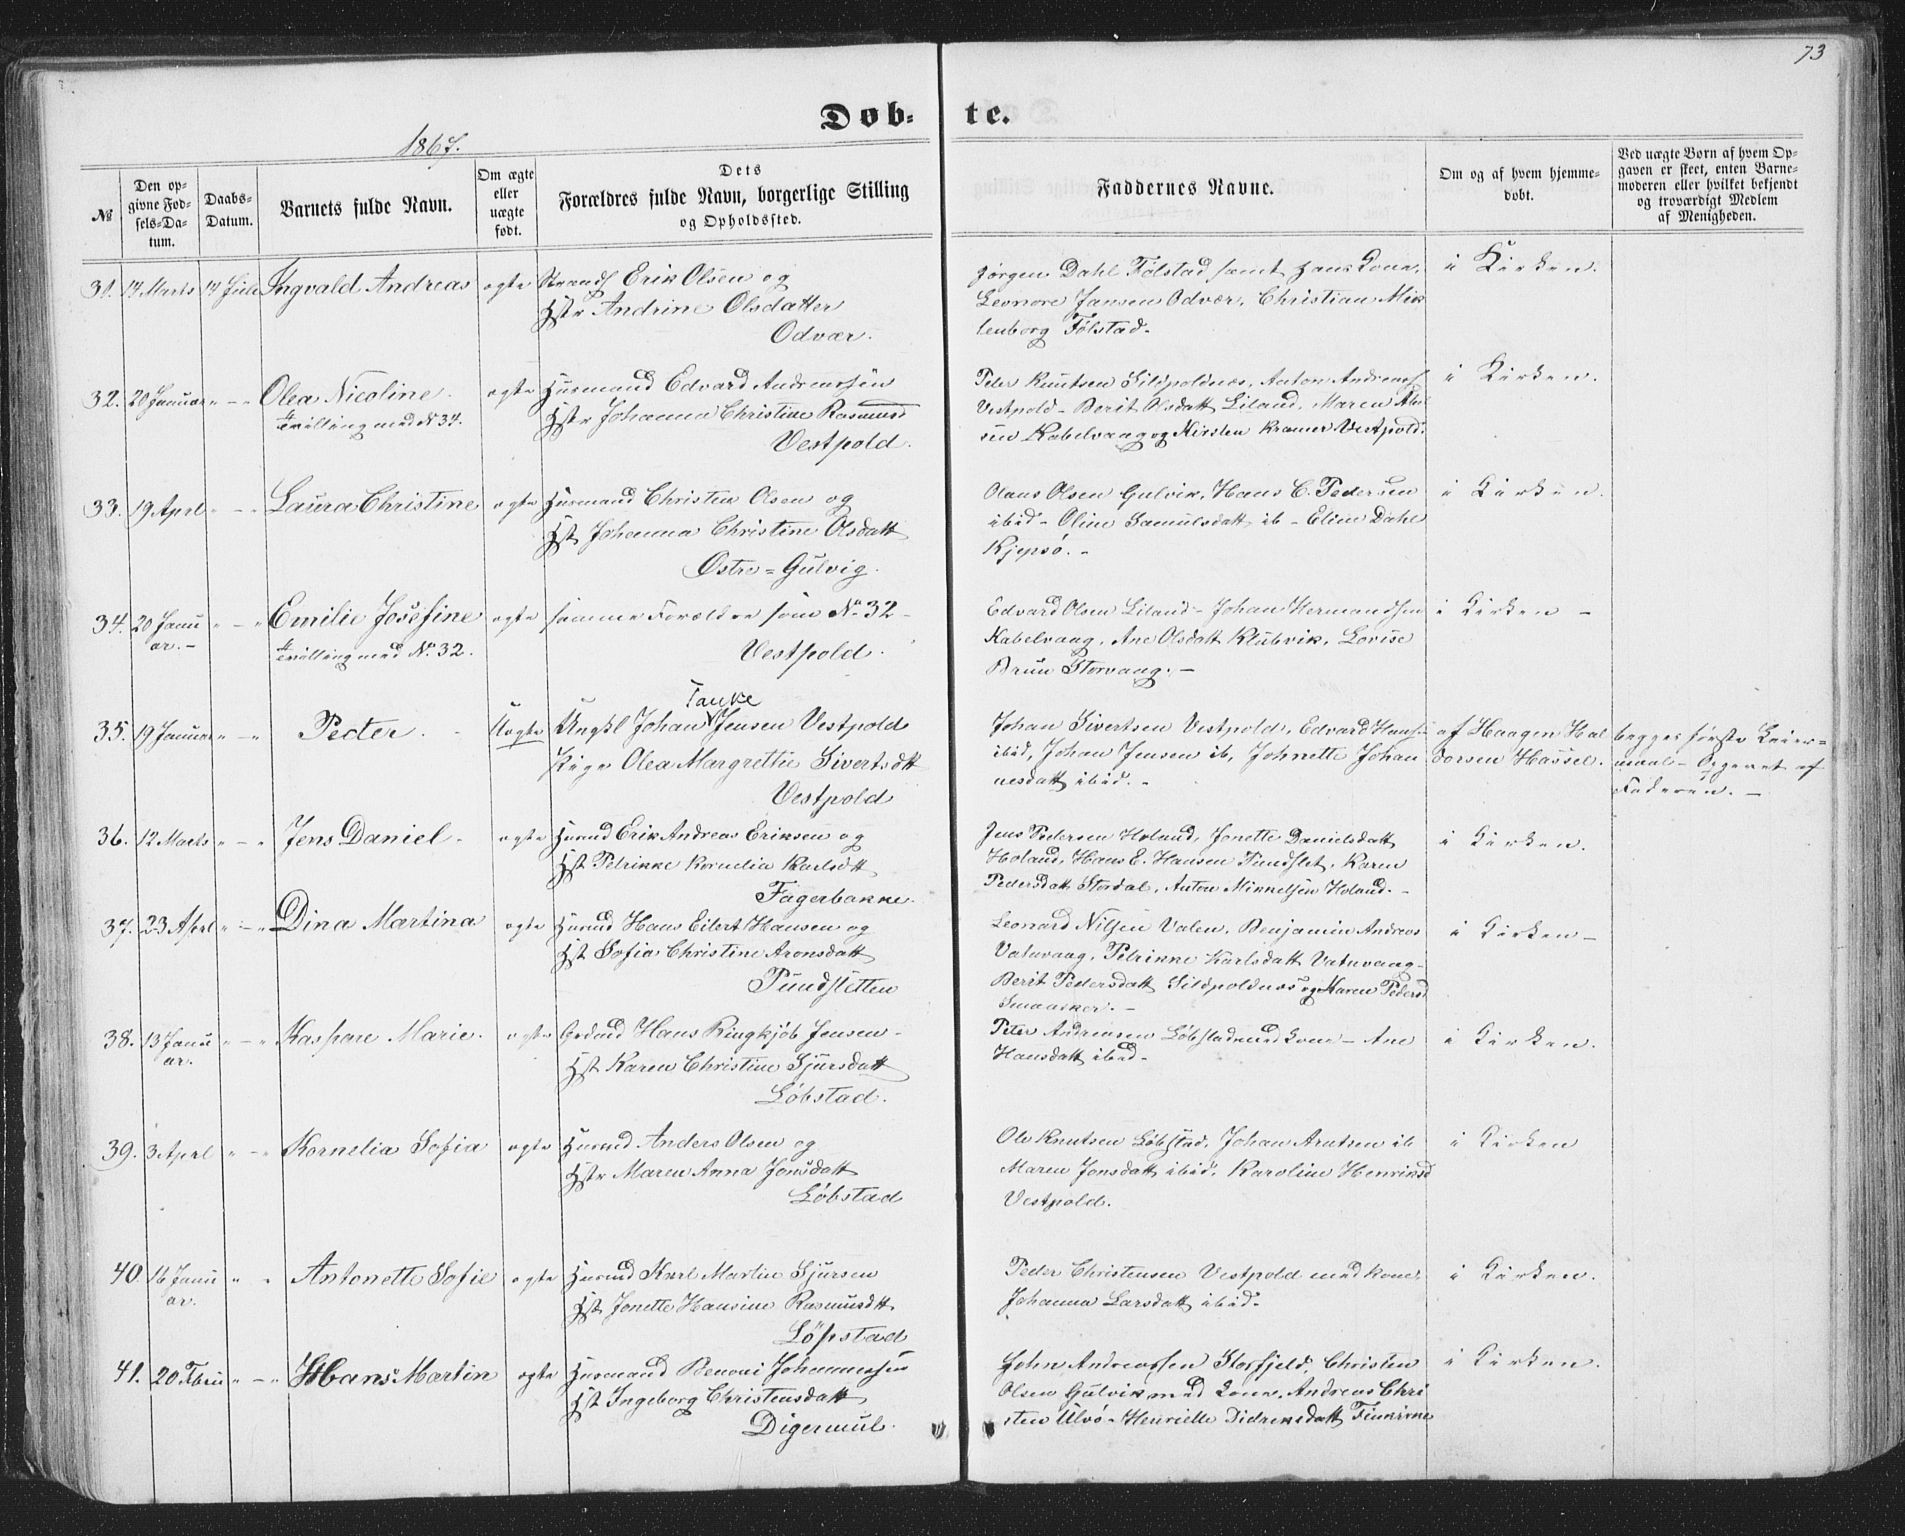 73
Døb-te.
1867.
№
Den opgivne Fødsels-Datum.
Daabs-Datum.
Barnets fulde Navn.
Om ægte eller uægte født.
Dets Forældres fulde Navn, borgerlige Stilling og Opholdssted.
Faddernes Navne.
Om og af hvem hjemmedøbt.
Ved uægte Børn af hvem Opgaven er skeet, enten Barnemoderen eller hvilket bekjendt og troværdigt Medlem af Menigheden.
31. 14 Marts 14 Juli Ingvald Andreas ægte Strands Erik Olsen og
Hstr Andrine Olsdatter
Odvær.
Jørgen Dahl Følstad samt Hans Kone,
Leonore Jansen Odvær, Christian Mek
lenborg Følstad.
i Kirken.
32. 20 Januar " — " Olea Nicoline. ægte Husmand Edvard Andreassen
Tvilling med N 34.
Hstr Johanna Christine Rasmusd
Vestpold.
Peder Knutsen Sildpoldnes, Anton Andreas
Vestpold - Berit Olsdatt Liland, Maren
sen Kabelvaag og Kirsten Kramer Vestpold.
i Kirken.
33. 19 Aprl " — " Laura Christine ægte Husmand Christen Olsen og
Hst Johanna Christine Olsdatt
Østre=Gulvig.
Olaus Olsen Gulvik, Hans C. Pedersen
ibid - Oline Samulsdatt ib - Eline Dahl
Kjepsø. -
i Kirken.
34. 20 Janu
ar. - " — " Emilie Josefine ægte samme Forældre som No 32 -
Tvilling med No 32.
Vestpold.
Edvard Olsen Liland - Johan Hermandsen
Kabelvaag, Ane Olsdatt Klubvik, Lovise
Brun Storvaag. -
i Kirken -
35. 19 Januar " — " Pecter. Uægte Ungkl Johan Tanke Jensen Vestpold
Pige Olea Margrethe Sivertsdtt
Vestpold
Johan Sivertsen Vestpold, Edvard Hans
ibid, Johan Jensen ib, Johnette Johan
nesdatt ibid. -
af Haagen Hal
dorsen Hassel.
begges første Leier=
maal - Opgevet af
Faderen. -
36. 12 Marts " — " Jens Daniel. ægte Husmd Erik Andreas Eriksen og
Hst Petrikke Kornelia Karlsdtt
Fagerbakke.
Jens Pedersen Holand, Jonette Danielsdatt
Holand, Hans E. Hansen Pundslet, Karen
Pedersdatt Stordal, Anton Mikkelsen Holand. -
i Kirken.
37. 23 Aprl " — " Dina Martina ægte Husmd Hans Eilert Hansen og
Hst Sofia Christine Aronsdatt
Pundsletten
Leonard Nilsen Valen, Benjamin Andreas
Vatuvaag, Petrikke Karlsdatt Vatuvaag
Berit Pedersdatt Sildpoldnes og Karen Pedersd
-
i Kirken -
38. 13 Janu
ar. " — " Kaspare Marie. ægte Hans Ringkjøb Jensen -
Hst Karen Christine Sjursdatt
Løbstad.
Peter Andreasen Løbstad med Kone - Ane
Hansdatt ibid -
i Kirken.
39. 3 Aprl " — " Kornelia Sofia ægte Husmd Anders Olsen og
Hstr Maren Anna Jonsdatt
Løbstad
Ole Knutsen Løbstad, Johan Arntsen ib
Maren Jonsdatt ibid, Karoline Henriksd
Vestpold.
i Kirken
40. 16 Janu
ar. " " Antonette Sofie ægte Husmd Karl Martin Sjursen
Hst Jonette Hansine Rasmusdtt
Løpstad
Peder Christensen Vestpold med Kone,
Johanna Larsdatt ibid -
i Kirken.
41. 20 Fbru " — " Hans Martin ægte Husmand Benoni Johannessen
Hst Ingeborg Christensdatt
Digermul.
John Andreassen Storfjeld, Christen
Olsen Gulvik med Kone, Andreas Chri
sten Ulvø - Henrielle Didriksdatt Finkirke
i Kirken.